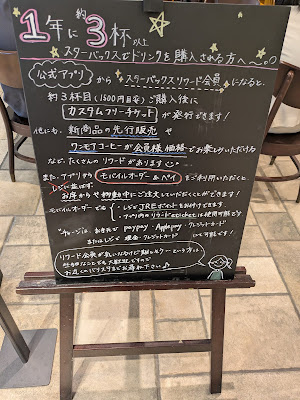 1年に約3杯以上
スターバックスでドリンクを購入される方へ〜
公式アプリからスターバックスリワード会員になると、
約3杯目(1500円目安)ご購入後に
カスタムフリーチケットが発行できます!
他にも、新商品の先行販売や
ワンモアコーヒーが会員様価格でお楽しみいただける
など、たくさんのリワードがあります
また、アプリからモバイルオーダー&ペイをご利用いただくと、
レジに並ばず、
お席からや移動中にご注文していただくことができます!
モバイルオーダーでも
・レジでJREポイントもお付けできます
・アプリ内のリワードeticketは使用可能です
チャージは、お手元でpaypay・Applepay・クレジットカード
またはレジで 現金・クレジットカード にて可能です!
リワード会員が気になるけど
お近くのバリスタまでお尋ね下さい♪